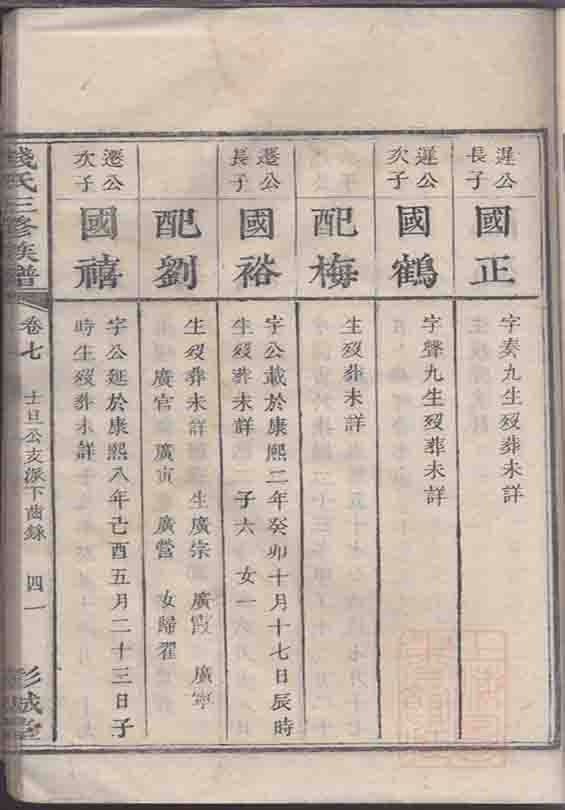 遲公
長子
國正
字奏九生歿葬未詳
遲公
次子
國鶴
字聲九生歿葬未詳
配梅
生歿葬未詳
遷公
長子
國裕
字公載於康熙二年癸卯十月十七日辰時
生歿葬未詳 子六 女一
配劉
生歿葬未詳 生廣宗 廣霞 廣寧
廣官 廣寅 廣營 女歸翟
遷公
次子
國禧
字公延於康熙八年己酉五月二十三日子
時生歿葬未詳
錢氏三修族譜
卷七
士旦公亥派下齒錄
四一
彭城堂